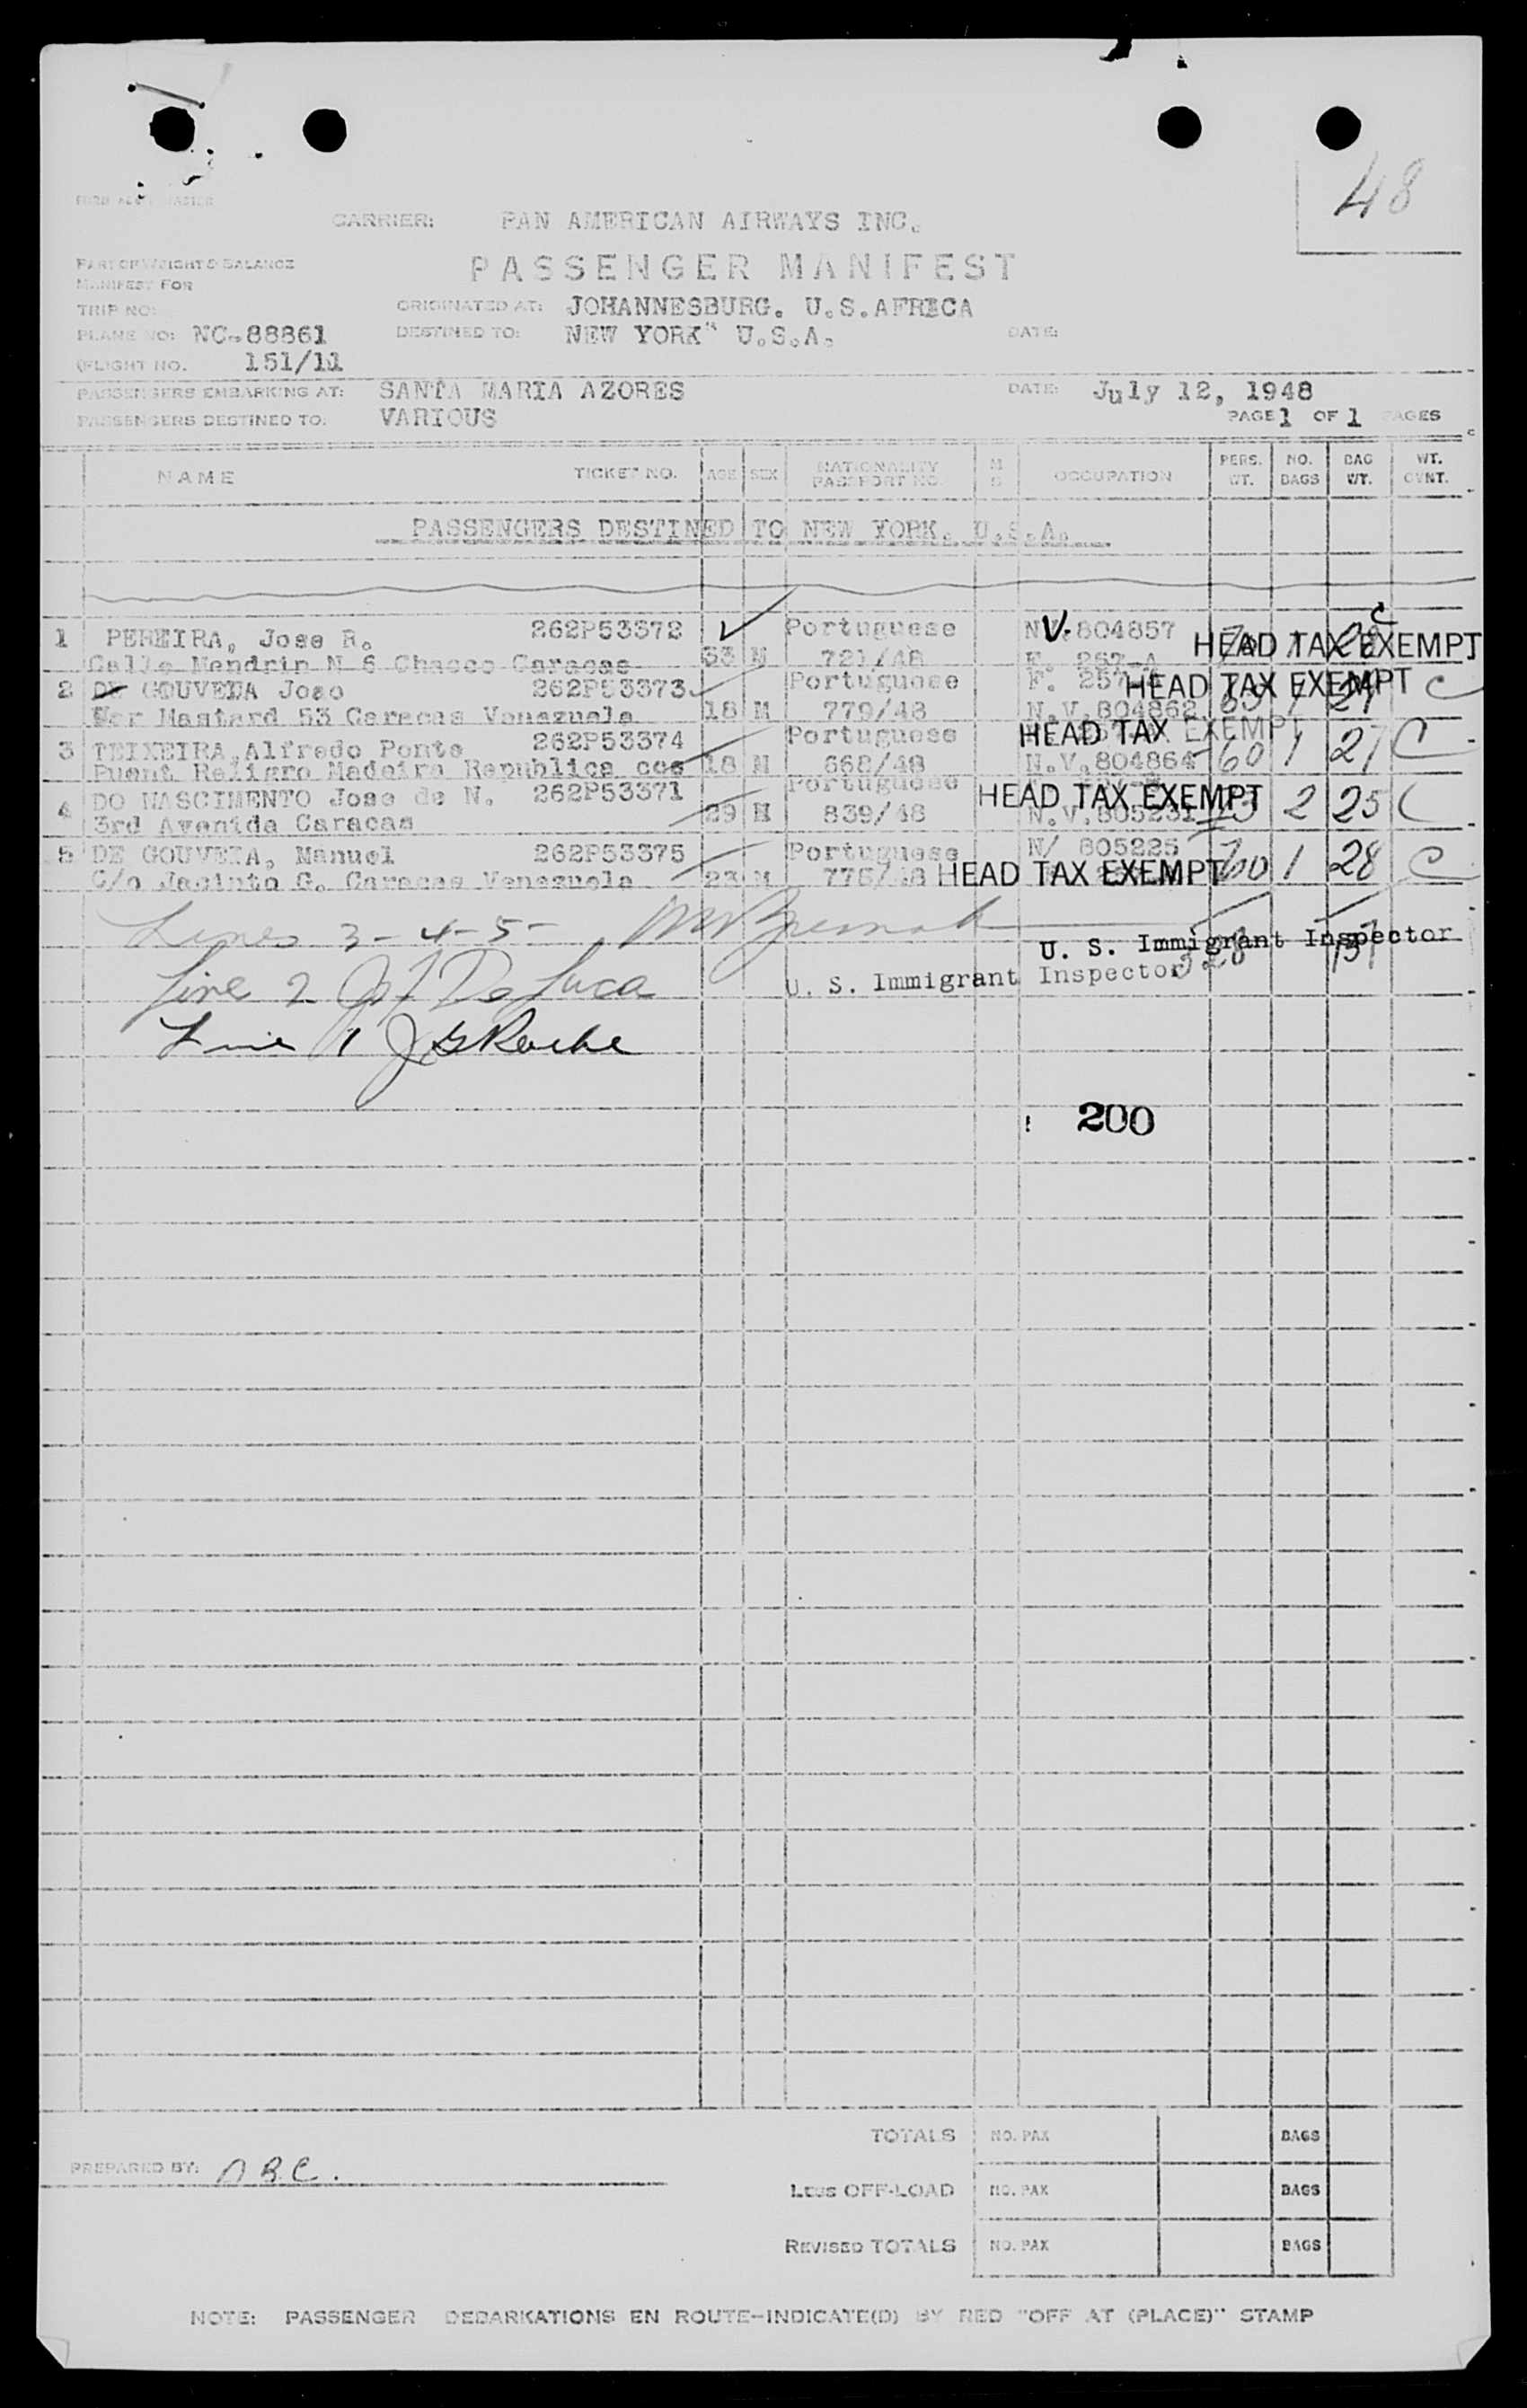 48
CARRIER: PAN AMERICAN AIRWAYS INC.
PART OF WEIGHT & BALANCE
PASSENGER MANIFEST
MANIFEST FOR
TRIP NO:
ORIGINATED AT: JOHANNESBURG. U.S.AFRICA
PLANE NO: NC-88861
DESTINED TO: NEW YORK" U.S.A.
DATE:
FLIGHT NO. 151/11
PASSENGERS EMBARKING AT: SANTA MARIA AZORES
DATE: July 12, 1948
PASSENGERS DESTINED TO: VARIOUS
PAGE 1 OF 1 PAGES
NAME TICKET NO. AGE SEX NATIONALITY PASSPORT NO. M S OCCUPATION PERS. WT. NO. BAGS BAG WT. WT. CVNT.
PASSENGERS DESTINED TO NEW YORK. U.S.A.
1 PEREIRA, Jose R. 262P53372 Portuguese N.V. 804857 HEAD TAX EXEMPT C
Calle Mendrin N 6 Chacco Caracas 33 M 721/48 F. 257-A
2 DE GOUVEIA Joao 262P53373 Portuguese F. 257 HEAD TAX EXEMPT C
Mastard 53 Caracas Venezuela 18 M 779/48 N.V.804862
3 TEIXEIRA, Alfredo Ponte 262P53374 Portuguese HEAD TAX EXEMPT
Puent Religro Madeiro Republica ccs 18 M 668/48 N.V.804864 60 1 27 C
4 DO NASCIMENTO Jose de N. 262P53371 Portuguese HEAD TAX EXEMPT
3rd Avenida Caracas 29 M 839/48 N.V.805231 2 25 C
5 DE GOUVEIA, Manuel 262P53375 Portuguese N/ 805225
C/o Jacinto G. Caracas Venezuela 23 M 776/48 HEAD TAX EXEMPT 60 1 28 C
Lines 3-4-5-
U. S. Immigrant Inspector
328
Line 2 J F De Luca U. S. Immigrant Inspector
Line 1 J G Roche
200
TOTALS NO. PAX BAGS
PREPARED BY:
LESS OFF-LOAD NO. PAX BAGS
REVISED TOTALS NO. PAX BAGS
NOTE: PASSENGER DEBARKATIONS EN ROUTE-INDICATE(D) BY RED "OFF AT (PLACE)" STAMP